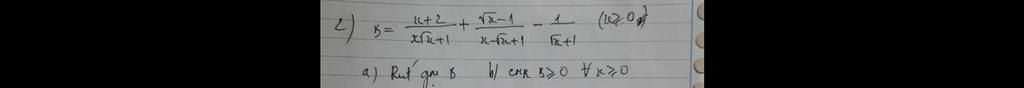 2) B = \frac{x+2}{x\sqrt{x}+1} + \frac{\sqrt{x}-1}{x-\sqrt{x}+1} - \frac{1}{\sqrt{x}+1} (x ≥ 0)
a) Rút gọn B b) CMR B ≥ 0 ∀ x ≥ 0